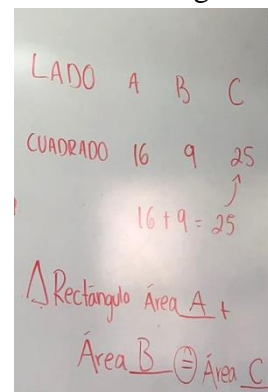 LADO A B C
CUADRADO 16 9 25
16 + 9 = 25
△ Rectángulo Área A +
Área B = Área C